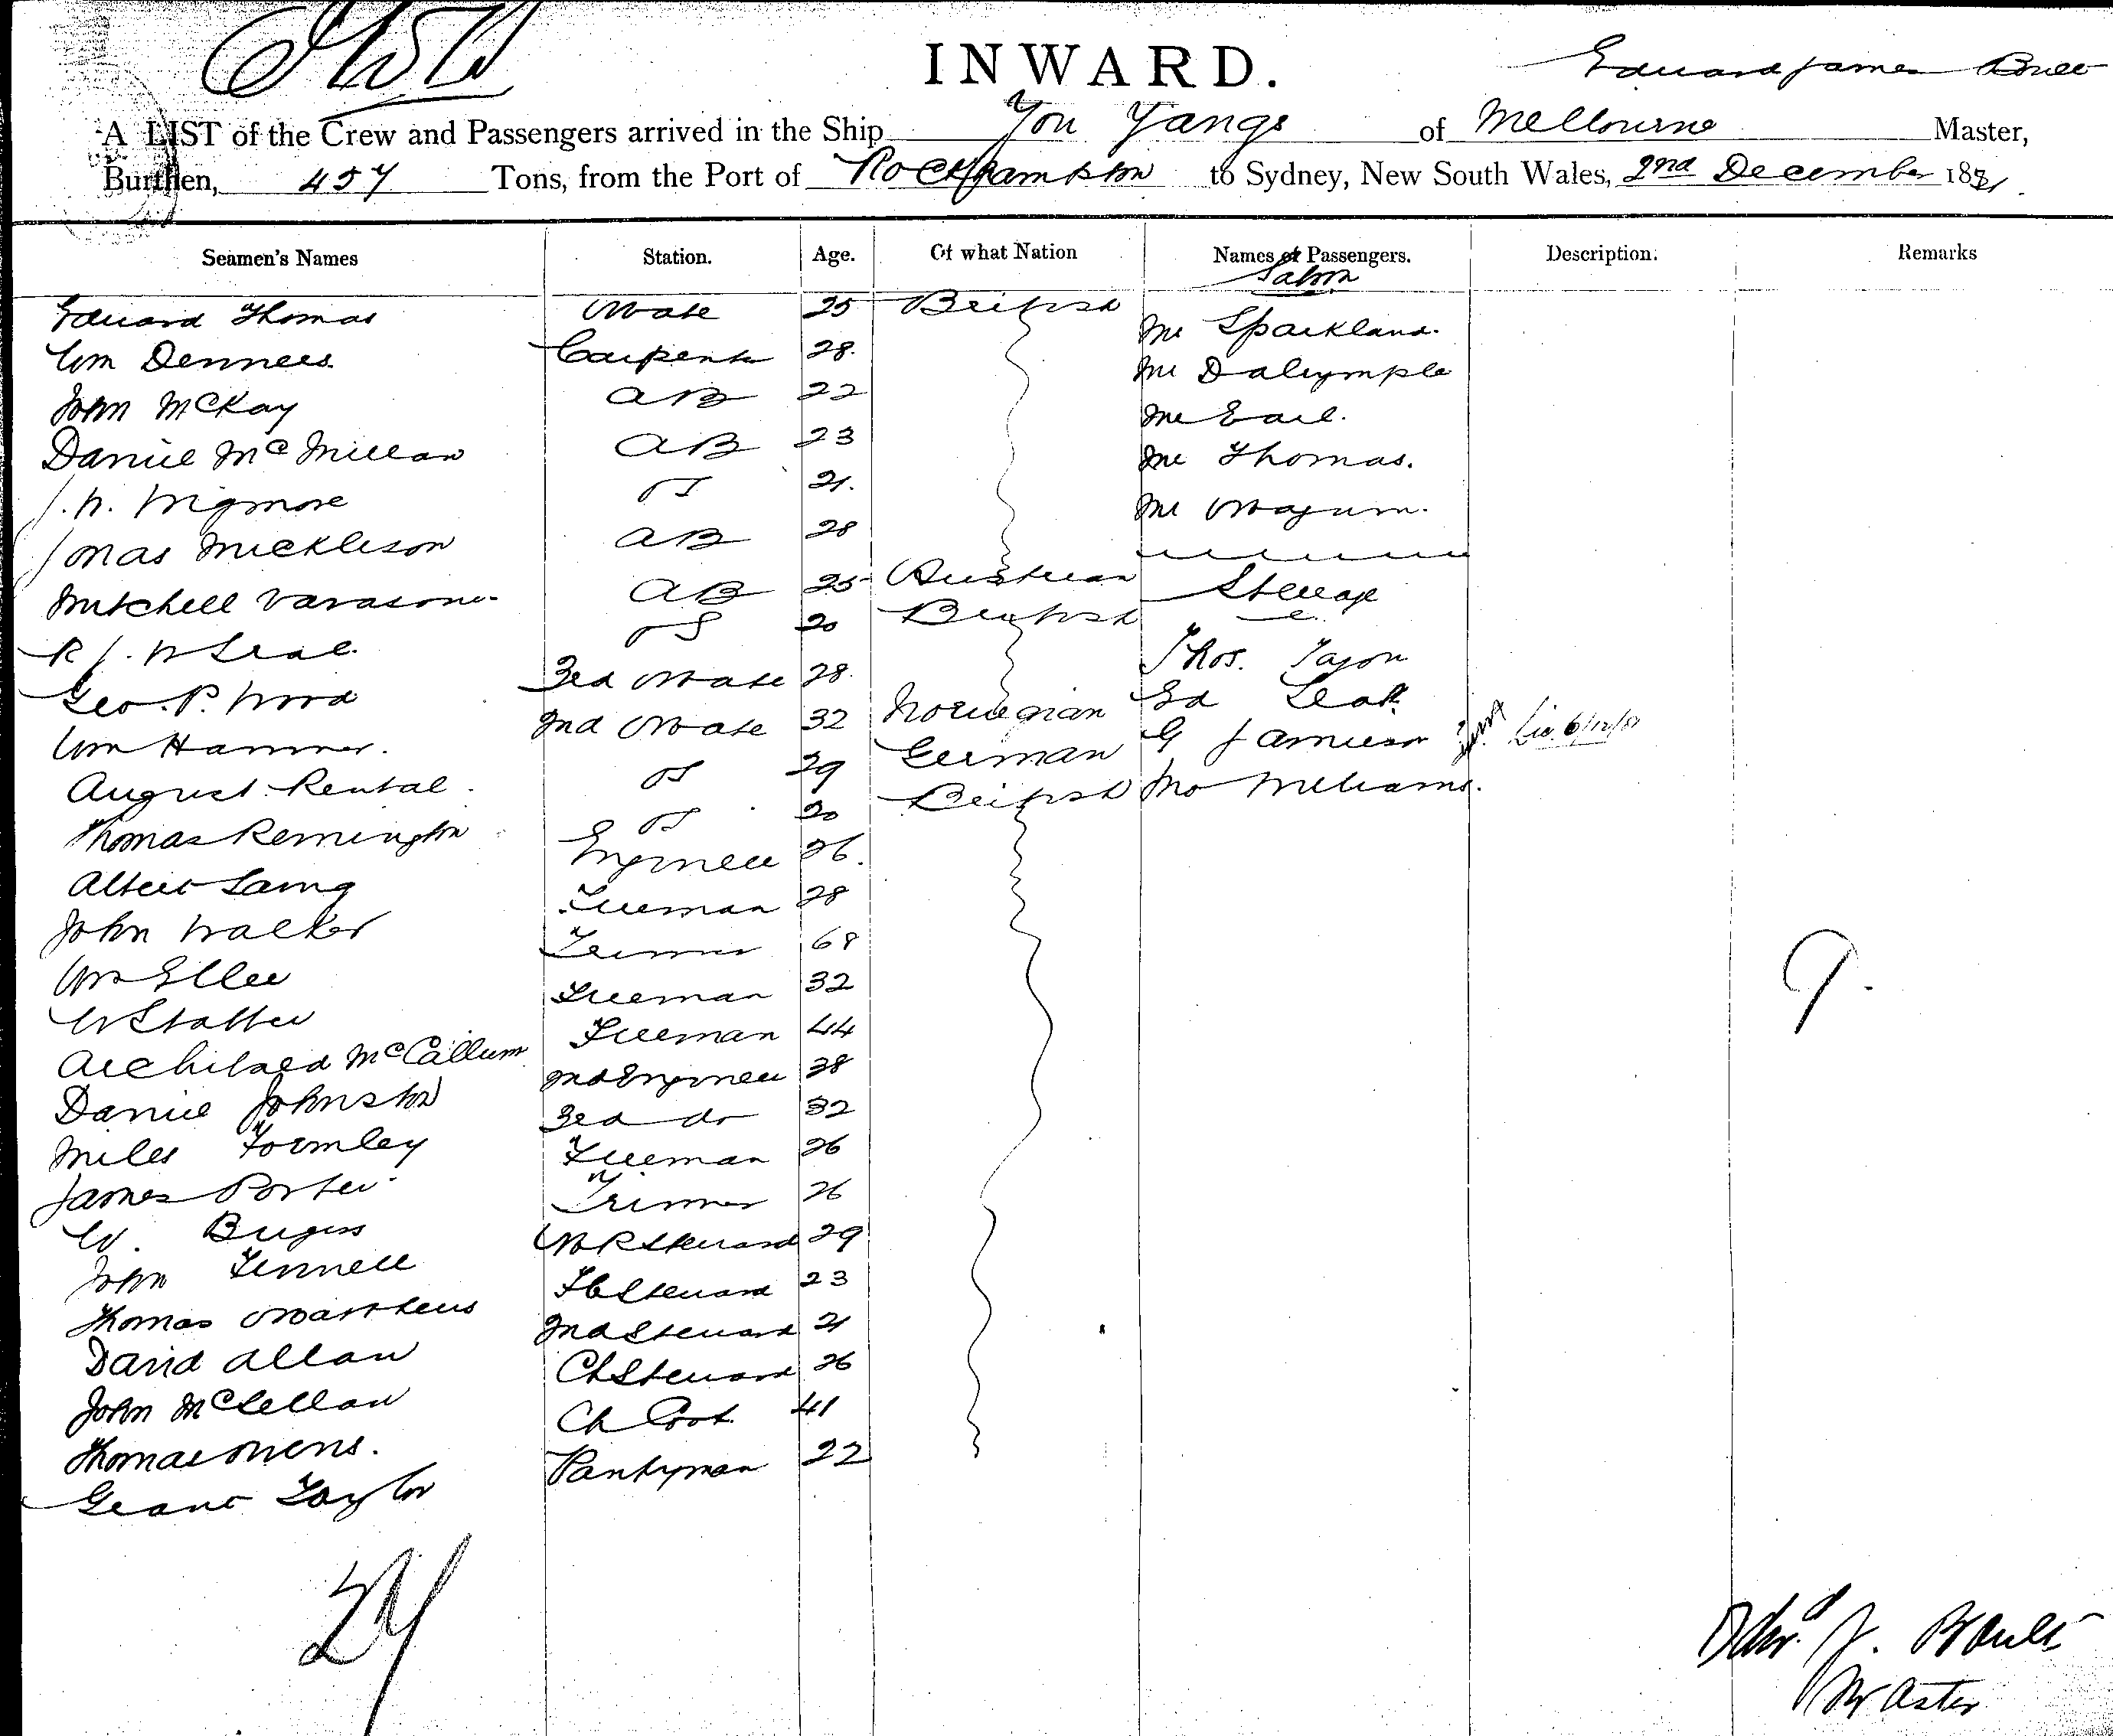 INWARD.
Edward James Boult
A LIST of the Crew and Passengers arrived in the Ship You Yangs of Melbourne Master,
Burthen, 457 Tons, from the Port of Rockhampton to Sydney, New South Wales, 2nd December 1881.
Seamen's Names Station. Age. Of what Nation Names of Passengers. Description. Remarks
Saloon
Edward Thomas Mate 25 British Mr Sparkland.
Wm Dennees. Carpenter 28. Mr Dalrymple
John McKay AB 22 Mr Earl.
Daniel McMillan AB 23 Mr Thomas.
J. W. Wigmore OS 21. Mr Magum.
Jonas Mickleson AB 28
Mitchell AB 25 Austrian Steerage
R J. OS 20 British
Geo. P. Wood 3rd Mate 28. Thos.
Wm Hammer. 2nd Mate 32 Norwegian Ed Leak
August Rental. OS 29 German G Jamieson
Thomas Remington OS 20 British Mo Williams.
Albert Laing Engineer 26.
John Walker Fireman 28
Wm Trimmer 68
W Fireman 32
Archibald McCallum Fireman 44
Daniel Johnston 2nd Engineer 38
Miles Formley 3rd do 32
James Porter. Fireman 26
W. Burgess Trimmer 26
John Fennell Steward 29
Thomas Matthews Steward 23
David Allan 2nd Steward 21
John McLellan Ch Steward 26
Thomas Owens. Ch Cook 41
Grant Taylor Pantryman 22
27
9.
Edwd J. Boult
Master